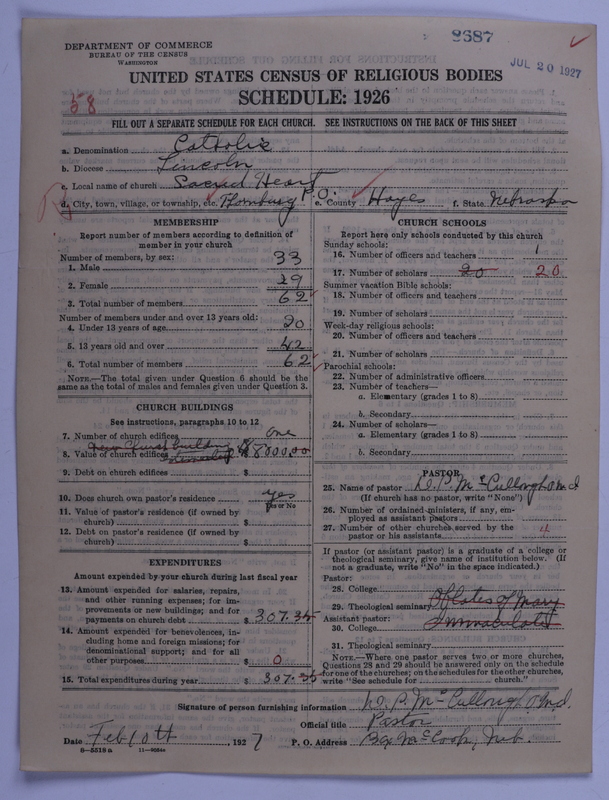 DEPARTMENT OF COMMERCE
BUREAU OF THE CENSUS
WASHINGTON
2687
JUL 20 1927
UNITED STATES CENSUS OF RELIGIOUS BODIES
SCHEDULE: 1926
58
FILL OUT A SEPARATE SCHEDULE FOR EACH CHURCH. SEE INSTRUCTIONS ON THE BACK OF THIS SHEET
a. Denomination Catholic
b. Diocese Lincoln
c. Local name of church Sacred Heart
d. City, town, village, or township, etc. Thornburg P.O. e. County Hayes f. State Nebraska
MEMBERSHIP
Report number of members according to definition of member in your church
Number of members, by sex:
1. Male 33
2. Female 29
3. Total number of members 62
Number of members under and over 13 years old:
4. Under 13 years of age 20
5. 13 years old and over 42
6. Total number of members 62
NOTE.—The total given under Question 6 should be the same as the total of males and females given under Question 3.
CHURCH BUILDINGS
See instructions, paragraphs 10 to 12
7. Number of church edifices one
New Church building
8. Value of church edifices $8000.00
9. Debt on church edifices $
10. Does church own pastor's residence yes
Yes or No
11. Value of pastor's residence (if owned by church) $
12. Debt on pastor's residence (if owned by church) $
EXPENDITURES
Amount expended by your church during last fiscal year
13. Amount expended for salaries, repairs, and other running expenses; for improvements or new buildings; and for payments on church debt $ 307.35
14. Amount expended for benevolences, including home and foreign missions; for denominational support; and for all other purposes $ 0
15. Total expenditures during year $ 307.35
CHURCH SCHOOLS
Report here only schools conducted by this church
Sunday schools:
16. Number of officers and teachers 1
17. Number of scholars 20 20
Summer vacation Bible schools:
18. Number of officers and teachers
19. Number of scholars
Week-day religious schools:
20. Number of officers and teachers
21. Number of scholars
Parochial schools:
22. Number of administrative officers
23. Number of teachers—
a. Elementary (grades 1 to 8)
b. Secondary
24. Number of scholars—
a. Elementary (grades 1 to 8)
b. Secondary
PASTOR
25. Name of pastor D. P. McCullough O.M.I.
(If church has no pastor, write "None")
26. Number of ordained ministers, if any, employed as assistant pastors
27. Number of other churches served by the pastor or his assistants 4
If pastor (or assistant pastor) is a graduate of a college or theological seminary, give name of institution below. (If not a graduate, write "No" in the space indicated.)
Pastor:
28. College
29. Theological seminary Oblates of Mary
Assistant pastor: Immaculate
30. College
31. Theological seminary
NOTE.—Where one pastor serves two or more churches, Questions 28 and 29 should be answered only on the schedule for one of the churches; on the schedules for the other churches, write "See schedule for church."
Signature of person furnishing information D. P. McCullough O.M.I.
Official title Pastor
Date Feb 10th, 1927 P. O. Address Box McCook, Neb.
8—5518a 11—9054